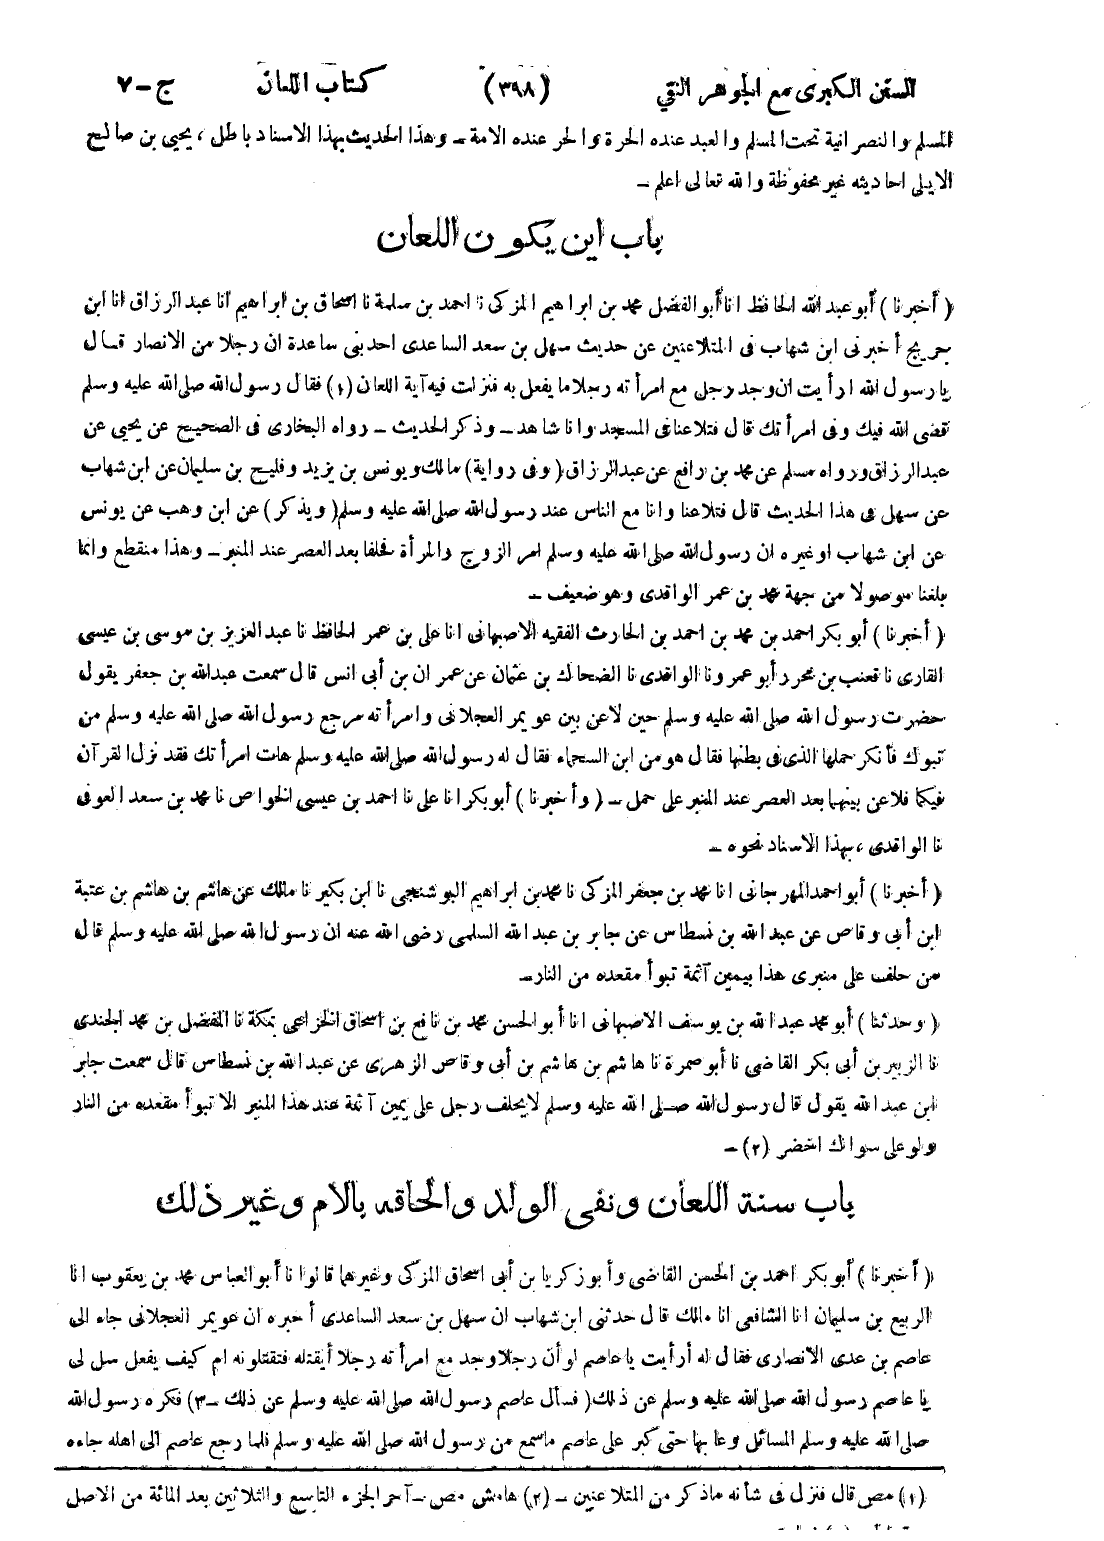 السنن الكبرى مع الجوهر النقي (٣٩٨) كتاب اللعان ج-٧
المسلم والنصرانية تحت المسلم والعبد عنده الحرة والحر عنده الامة - وهذا الحديث بهذا الاسناد باطل ، يحيى بن صالح
الايلى احاديثه غير محفوظة والله تعالى اعلم -
باب اين يكون اللعان
( أخبرنا ) أبو عبد الله الحافظ انا أبو الفضل محمد بن ابراهيم المزكى نا احمد بن سلمة نا اسحاق بن ابراهيم أنا عبد الرزاق انا ابن
جريج أخبرنى ابن شهاب فى المتلاعنين عن حديث سهل بن سعد الساعدى احد بنى ساعدة ان رجلا من الانصار قال
يا رسول الله ارأيت ان وجد رجل مع امرأته رجلا ما يفعل به فنزلت فيه آية اللعان (١) فقال رسول الله صلى الله عليه وسلم
قضى الله فيك وفى امرأتك قال فتلاعنا فى المسجد وانا شاهد - وذكر الحديث - رواه البخارى فى الصحيح عن يحيى عن
عبد الرزاق ورواه مسلم عن محمد بن رافع عن عبد الرزاق ( وفى رواية ) مالك ويونس بن يزيد وفليح بن سليمان عن ابن شهاب
عن سهل فى هذا الحديث قال فتلاعنا وانا مع الناس عند رسول الله صلى الله عليه وسلم ( ويذكر ) عن ابن وهب عن يونس
عن ابن شهاب او غيره ان رسول الله صلى الله عليه وسلم امر الزوج والمرأة فحلفا بعد العصر عند المنبر - وهذا منقطع وانما
بلغنا موصولا من جهة محمد بن عمر الواقدى وهو ضعيف -
( أخبرنا ) أبو بكر احمد بن محمد بن احمد بن الحارث الفقيه الاصبهانى انا على بن عمر الحافظ نا عبد العزيز بن موسى بن عيسى
القارى نا قعنب بن محرر أبو عمرو نا الواقدى نا الضحاك بن عثمان عن عمران بن أبى انس قال سمعت عبد الله بن جعفر يقول
حضرت رسول الله صلى الله عليه وسلم حين لاعن بين عويمر العجلانى وامرأته مرجع رسول الله صلى الله عليه وسلم من
تبوك فأنكر حملها الذى فى بطنها فقال هو من ابن السحماء فقال له رسول الله صلى الله عليه وسلم هات امرأتك فقد نزل القرآن
فيكما فلاعن بينهما بعد العصر عند المنبر على حمل - ( وأخبرنا ) أبو بكر انا على نا احمد بن عيسى الخواص نا محمد بن سعد العوفى
نا الواقدى ، بهذا الاسناد نحوه -
( أخبرنا ) أبو احمد المهرجانى انا محمد بن جعفر المزكى نا محمد بن ابراهيم البوشنجى نا ابن بكير نا مالك عن هاشم بن هاشم بن عتبة
ابن أبى وقاص عن عبد الله بن نسطاس عن جابر بن عبد الله السلمى رضى الله عنه ان رسول الله صلى الله عليه وسلم قال
من حلف على منبرى هذا بيمين آثمة تبوأ مقعده من النار -
( وحدثنا ) أبو محمد عبد الله بن يوسف الاصبهانى انا أبو الحسن محمد بن نافع بن اسحاق الخزاعى بمكة نا المفضل بن محمد الجندى
نا الزبير بن أبى بكر القاضى نا أبو ضمرة نا هاشم بن هاشم بن أبى وقاص الزهرى عن عبد الله بن نسطاس قال سمعت جابر
ابن عبد الله يقول قال رسول الله صلى الله عليه وسلم لا يحلف رجل على يمين آثمة عند هذا المنبر الا تبوأ مقعده من النار
ولو على سواك اخضر (٢) -
باب سنة اللعان ونفى الولد والحاقه بالام وغير ذلك
( أخبرنا ) أبو بكر احمد بن الحسن القاضى وأبو زكريا بن أبى اسحاق المزكى وغيرهما قالوا نا أبو العباس محمد بن يعقوب انا
الربيع بن سليمان انا الشافعى انا مالك قال حدثنى ابن شهاب ان سهل بن سعد الساعدى أخبره ان عويمر العجلانى جاء الى
عاصم بن عدى الانصارى فقال له أرأيت يا عاصم لو أن رجلا وجد مع امرأته رجلا أيقتله فتقتلونه ام كيف يفعل سل لى
يا عاصم رسول الله صلى الله عليه وسلم عن ذلك ( فسأل عاصم رسول الله صلى الله عليه وسلم عن ذلك -٣) فكره رسول الله
صلى الله عليه وسلم المسائل وعابها حتى كبر على عاصم ما سمع من رسول الله صلى الله عليه وسلم فلما رجع عاصم الى اهله جاءه
(١) مص قال فنزل فى شأنه ما ذكر من المتلاعنين - (٢) هامش مص - آخر الجزء التاسع والثلاثين بعد المائة من الاصل